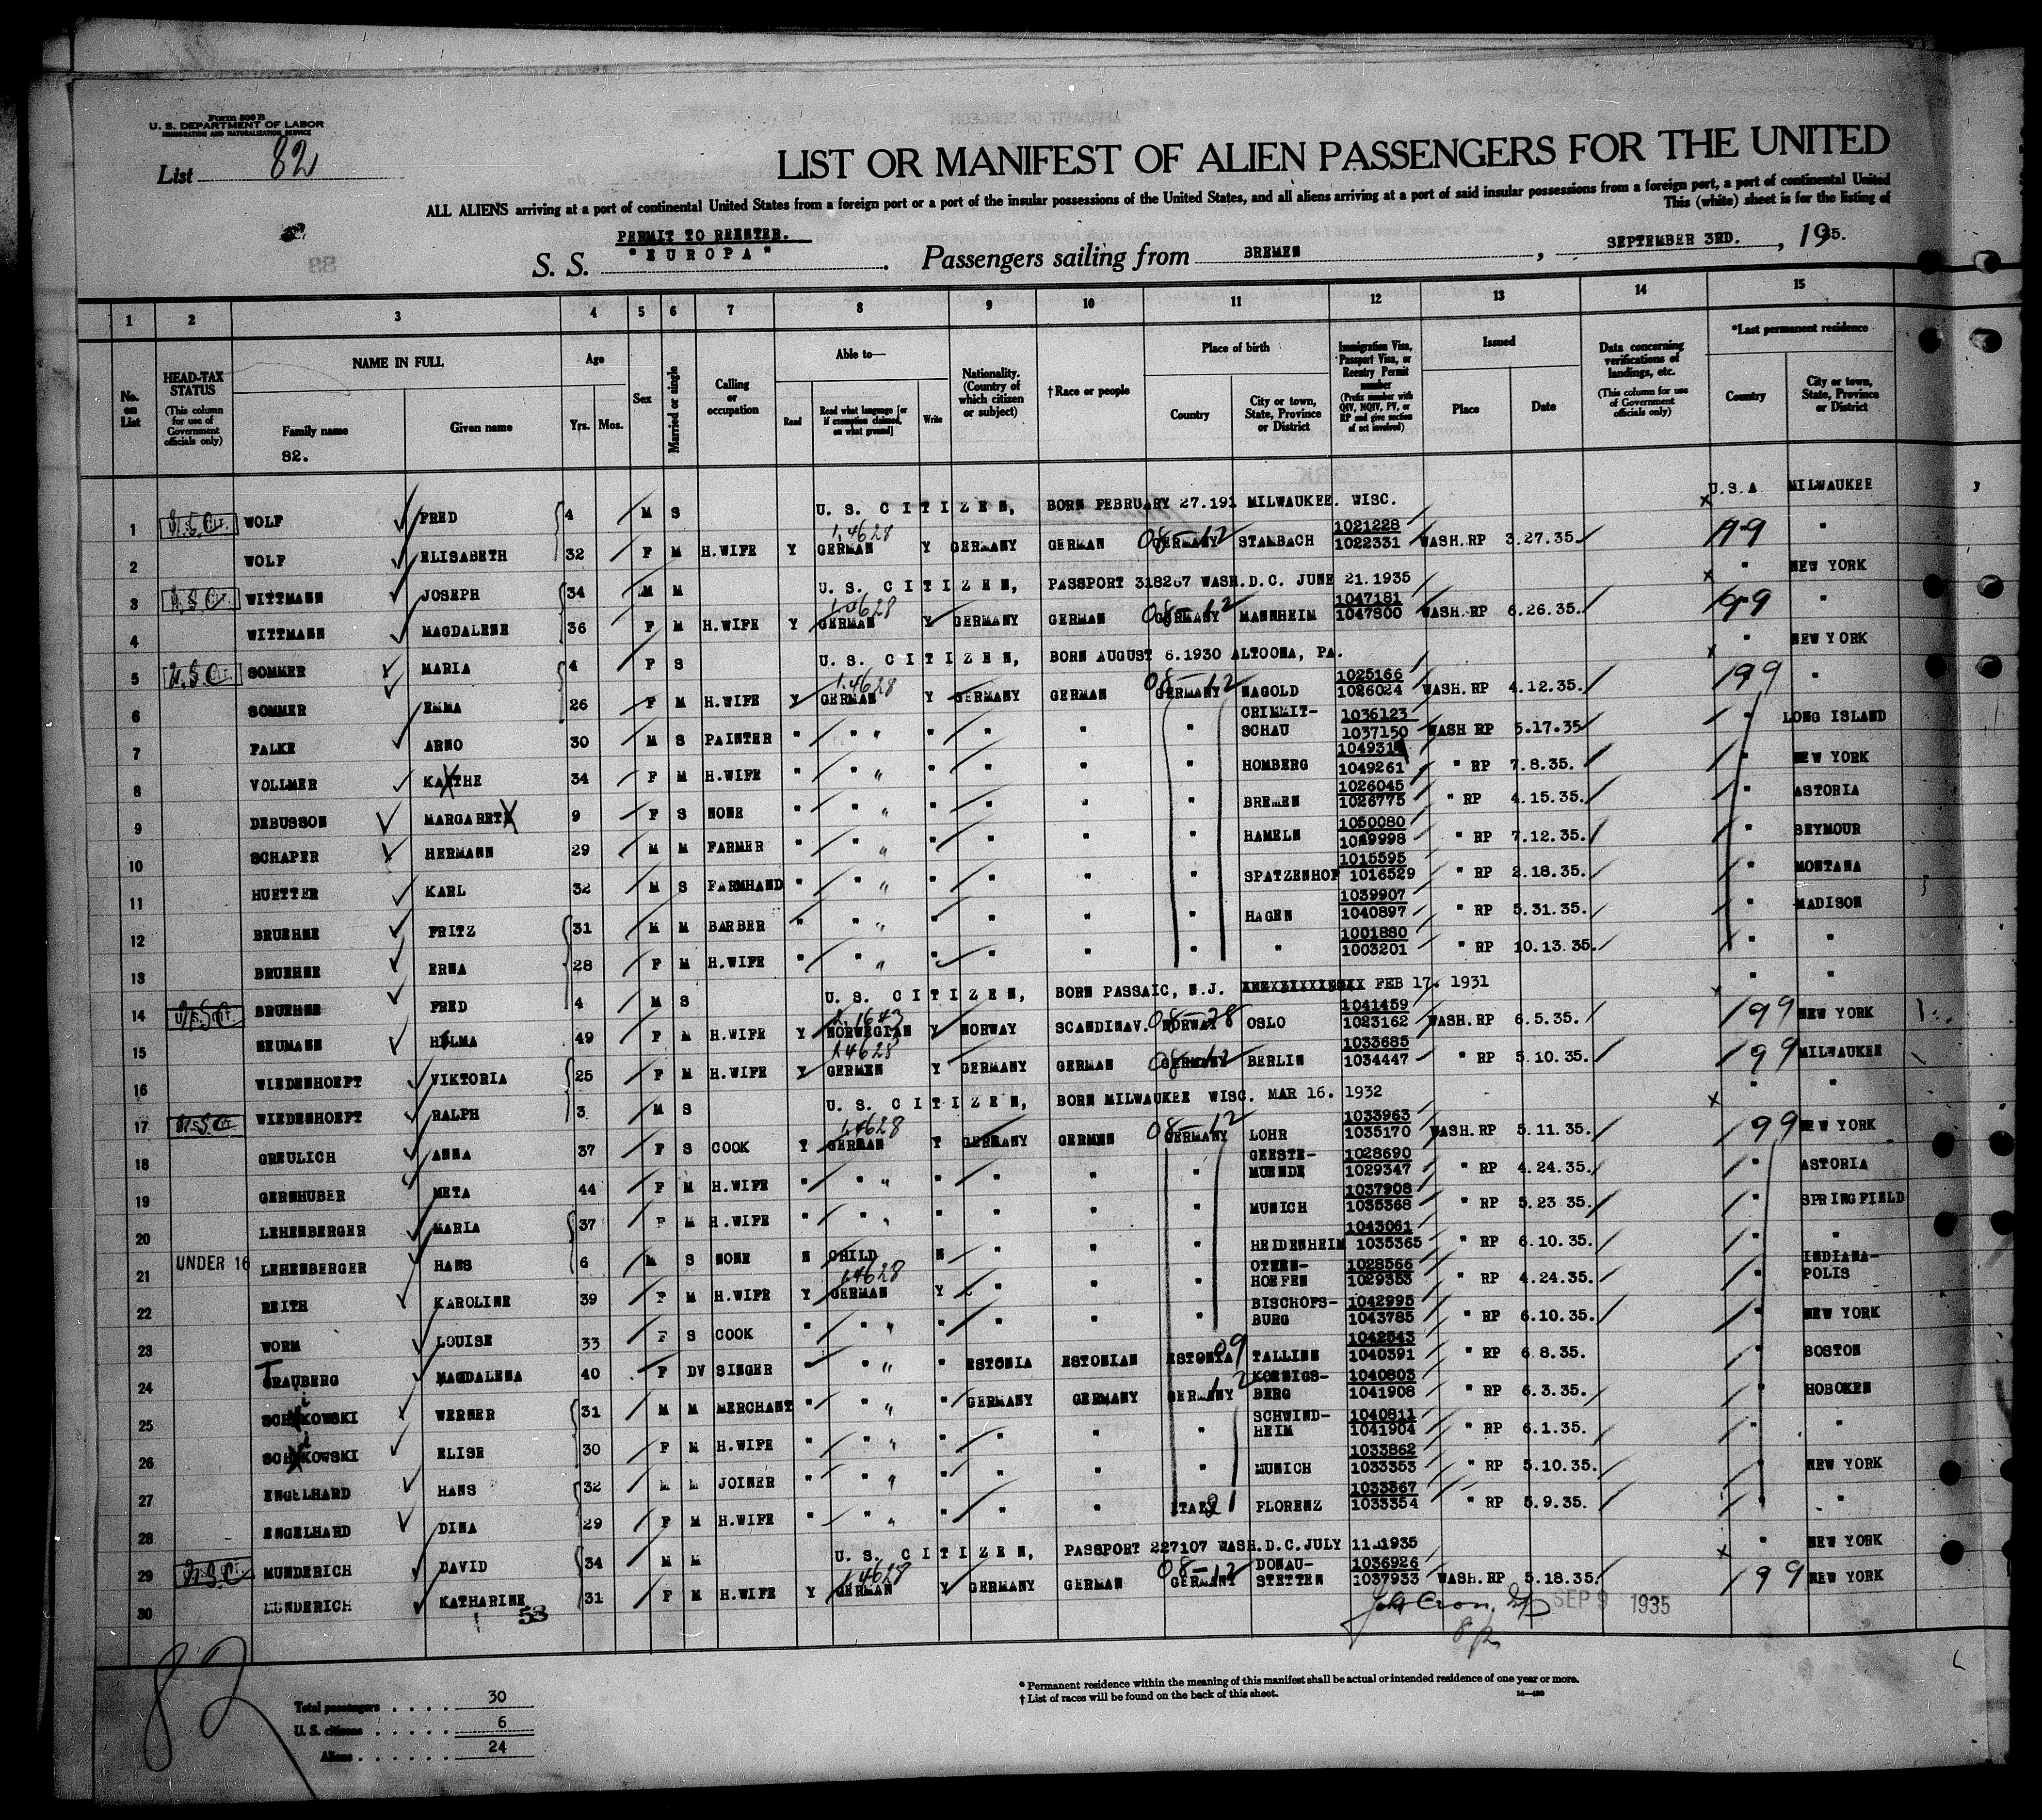 Form 500 B
U. S. DEPARTMENT OF LABOR
IMMIGRATION AND NATURALIZATION SERVICE
List 82
LIST OR MANIFEST OF ALIEN PASSENGERS FOR THE UNITED
ALL ALIENS arriving at a port of continental United States from a foreign port or a port of the insular possessions of the United States, and all aliens arriving at a port of said insular possessions from a foreign port, a port of continental United
This (white) sheet is for the listing of
PERMIT TO REENTER.
S. S. "EUROPA". Passengers sailing from BREMEN, SEPTEMBER 3RD., 1935.
1 2 3 4 5 6 7 8 9 10 11 12 13 14 15
No. on List
HEAD-TAX STATUS (This column for use of Government officials only)
NAME IN FULL
Family name
Given name
82.
Age
Yrs. Mos.
Sex
Married or single
Calling or occupation
Able to—
Read
Read what language [or if exemption claimed, on what ground]
Write
Nationality. (Country of which citizen or subject)
†Race or people
Place of birth
Country
City or town, State, Province or District
Immigration Visa, Passport Visa, or Reentry Permit number (Prefix number with QIV, NQIV, PV, or RP and give section of act involved)
Issued
Place
Date
Data concerning verifications of landings, etc. (This column for use of Government officials only)
*Last permanent residence
Country
City or town, State, Province or District
1 WOLF FRED 4 M S U. S. CITIZEN, BORN FEBRUARY 27.191 MILWAUKEE. WISC. U.S.A MILWAUKEE
2 WOLF ELISABETH 32 F M H.WIFE Y GERMAN Y GERMANY GERMAN GERMANY STAMBACH 1021228 1022331 WASH.RP 3.27.35. "
3 WITTMANN JOSEPH 34 M M U. S. CITIZEN, PASSPORT 318267 WASH.D.C. JUNE 21.1935 " NEW YORK
4 WITTMANN MAGDALENE 36 F M H.WIFE Y GERMAN Y GERMANY GERMAN GERMANY MANNHEIM 1047181 1047800 WASH.RP 6.26.35. "
5 SOMMER MARIA 4 F S U. S. CITIZEN, BORN AUGUST 6.1930 ALTOONA, PA. " NEW YORK
6 SOMMER EMMA 26 F M H.WIFE Y GERMAN Y GERMANY GERMAN GERMANY NAGOLD 1025166 1026024 WASH. RP 4.12.35. "
7 FALKE ARNO 30 M S PAINTER " " " " " " " CRIMMIT-SCHAU 1036123 1037150 WASH RP 5.17.35 " LONG ISLAND
8 VOLLMER KAETHE 34 F M H.WIFE " " " " " " " HOMBERG 1049261 " RP 7.8.35. " NEW YORK
9 DEBUSSON MARGARET 9 F S NONE " " " " " " " BREMEN 1026045 1026775 " RP 4.15.35. " ASTORIA
10 SCHAPER HERMANN 29 M M FARMER " " " " " " " HAMELN 1050080 1049998 " RP 7.12.35. " SEYMOUR
11 HUETTER KARL 32 M S FARMHAND " " " " " " " SPATZENHOF 1015595 1016529 " RP 2.18.35. " MONTANA
12 BRUEHNE FRITZ 31 M M BARBER " " " " " " " HAGEN 1039907 1040897 " RP 5.31.35. " MADISON
13 BRUEHNE ERNA 28 F M H.WIFE " " " " " " " " 1001880 1003201 " RP 10.13.35. " "
14 BRUEHNE FRED 4 M S U. S. CITIZEN, BORN PASSAIC, N.J. FEB 17. 1931 " "
15 NEUMANN HELMA 49 F M H.WIFE Y NORWEGIAN Y NORWAY SCANDINAV. NORWAY OSLO 1041459 1023162 WASH.RP 6.5.35. NEW YORK
16 WIEDENHOEFT VIKTORIA 25 F M H.WIFE Y GERMEN Y GERMANY GERMAN GERMANY BERLIN 1033685 1034447 " RP 5.10.35. MILWAUKEE
17 WIEDENHOEFT RALPH 3 M S U. S. CITIZEN, BORN MILWAUKEE WISC. MAR 16. 1932 " "
18 GREULICH ANNA 37 F S COOK Y GERMAN Y GERMANY GERMEN GERMANY LOHR 1033963 1035170 WASH.RP 5.11.35. NEW YORK
19 GERNHUBER META 44 F M H.WIFE " " " " " " " GEESTE-MUENDE 1028690 1029347 " RP 4.24.35. " ASTORIA
20 LEHENBERGER MARIA 37 F M H.WIFE " " " " " " " MUNICH 1037908 1035368 " RP 5.23 35. " SPRINGFIELD
21 UNDER 16 LEHENBERGER HANS 6 M S NONE N CHILD N " " " HEIDENHEIM 1043061 1035365 " RP 6.10.35. " "
22 REITH KAROLINE 39 F M H.WIFE Y GERMAN Y " " " HOEFEN 1028566 1029353 " RP 4.24.35. " INDIANA-POLIS
23 WORM LOUISE 33 F S COOK " " " " " " " BISCHOFS-BURG 1042995 1043785 " RP 6.10.35. " NEW YORK
24 TRAUBERG MAGDALENA 40 F DV SINGER " " " " ESTONIA ESTONIAN ESTONIA TALLINN 1042543 1040391 " RP 6 8.35. " BOSTON
25 KOWSKI WERNER 31 M M MERCHANT " " " " GERMANY GERMANY GERMANY KOENIGS-BERG 1040803 1041908 " RP 6.3.35. " HOBOKEN
26 KOWSKI ELISE 30 F M H.WIFE " " " " " " " SCHWIND-HEIM 1040811 1041904 " RP 6.1.35. " "
27 ENGELHARD HANS 32 M M JOINER " " " " " " " MUNICH 1033862 1033353 " RP 5.10.35. " NEW YORK
28 ENGELHARD DINA 29 F M H.WIFE " " " " " " ITALY FLORENZ 1033367 1033354 " RP 5.9.35. " "
29 MUNDERICH DAVID 34 M M U. S. CITIZEN, PASSPORT 227107 WASH.D.C.JULY 11.1935 " NEW YORK
30 MUNDERICH KATHARINE 31 F M H.WIFE Y GERMAN Y GERMANY GERMAN GERMANY DONAU-STETTEN 1036926 1037933 WASH.RP 5.18.35. NEW YORK
53
SEP 9 1935
82
* Permanent residence within the meaning of this manifest shall be actual or intended residence of one year or more.
† List of races will be found on the back of this sheet.
Total passengers . . . . 30
U. S. citizens . . . . . 6
Aliens . . . . . 24